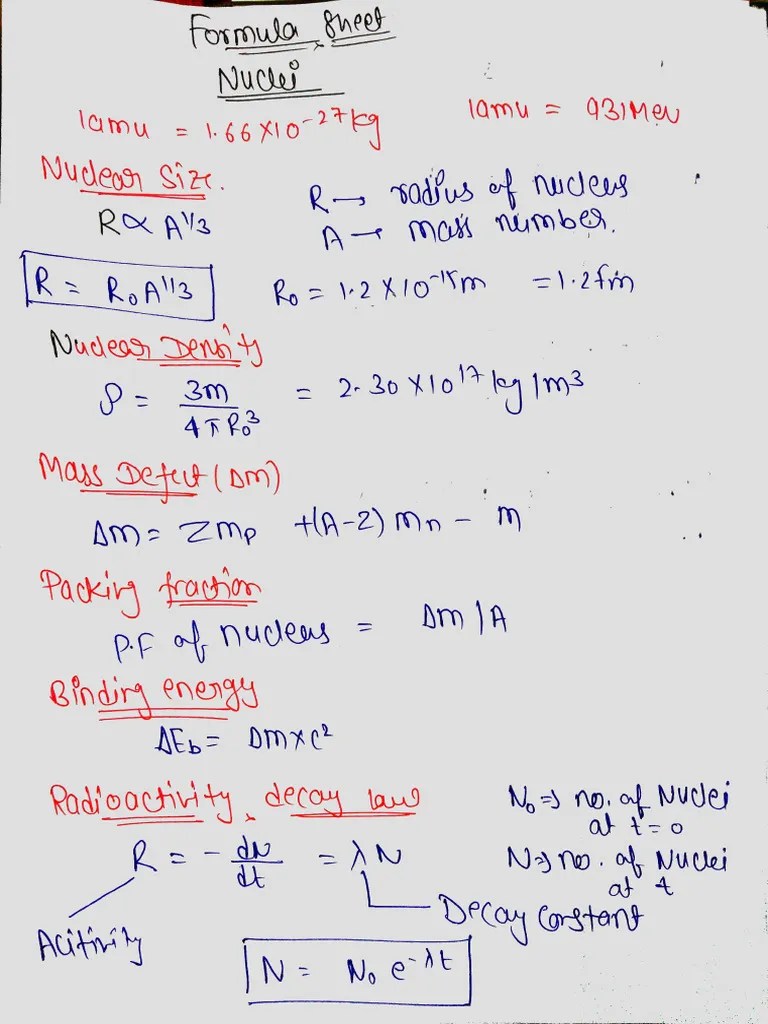 Formula Sheet
Nuclei
1amu = 1.66×10⁻²⁷kg
1amu = 931Mev
Nuclear Size.
R∝ A^1/3
R → radius of nucleus
A → mass number.
R = R₀A^1/3
R₀ = 1.2 × 10⁻¹⁵m = 1.2fm
Nuclear Density
ρ = 3m / 4πR₀³ = 2.30 × 10¹⁷ kg/m³
Mass Defect (Δm)
Δm = Zmp + (A-Z) mn - m
Packing fraction
P.F of nucleus = Δm/A
Binding energy
ΔEb = Δm×c²
Radioactivity, decay law
N₀ ⇒ no. of Nuclei
at t=0
R = - dN/dt = λN
N ⇒ no. of Nuclei
at t
Decay Constant
Acitivity
N = N₀ e^-λt